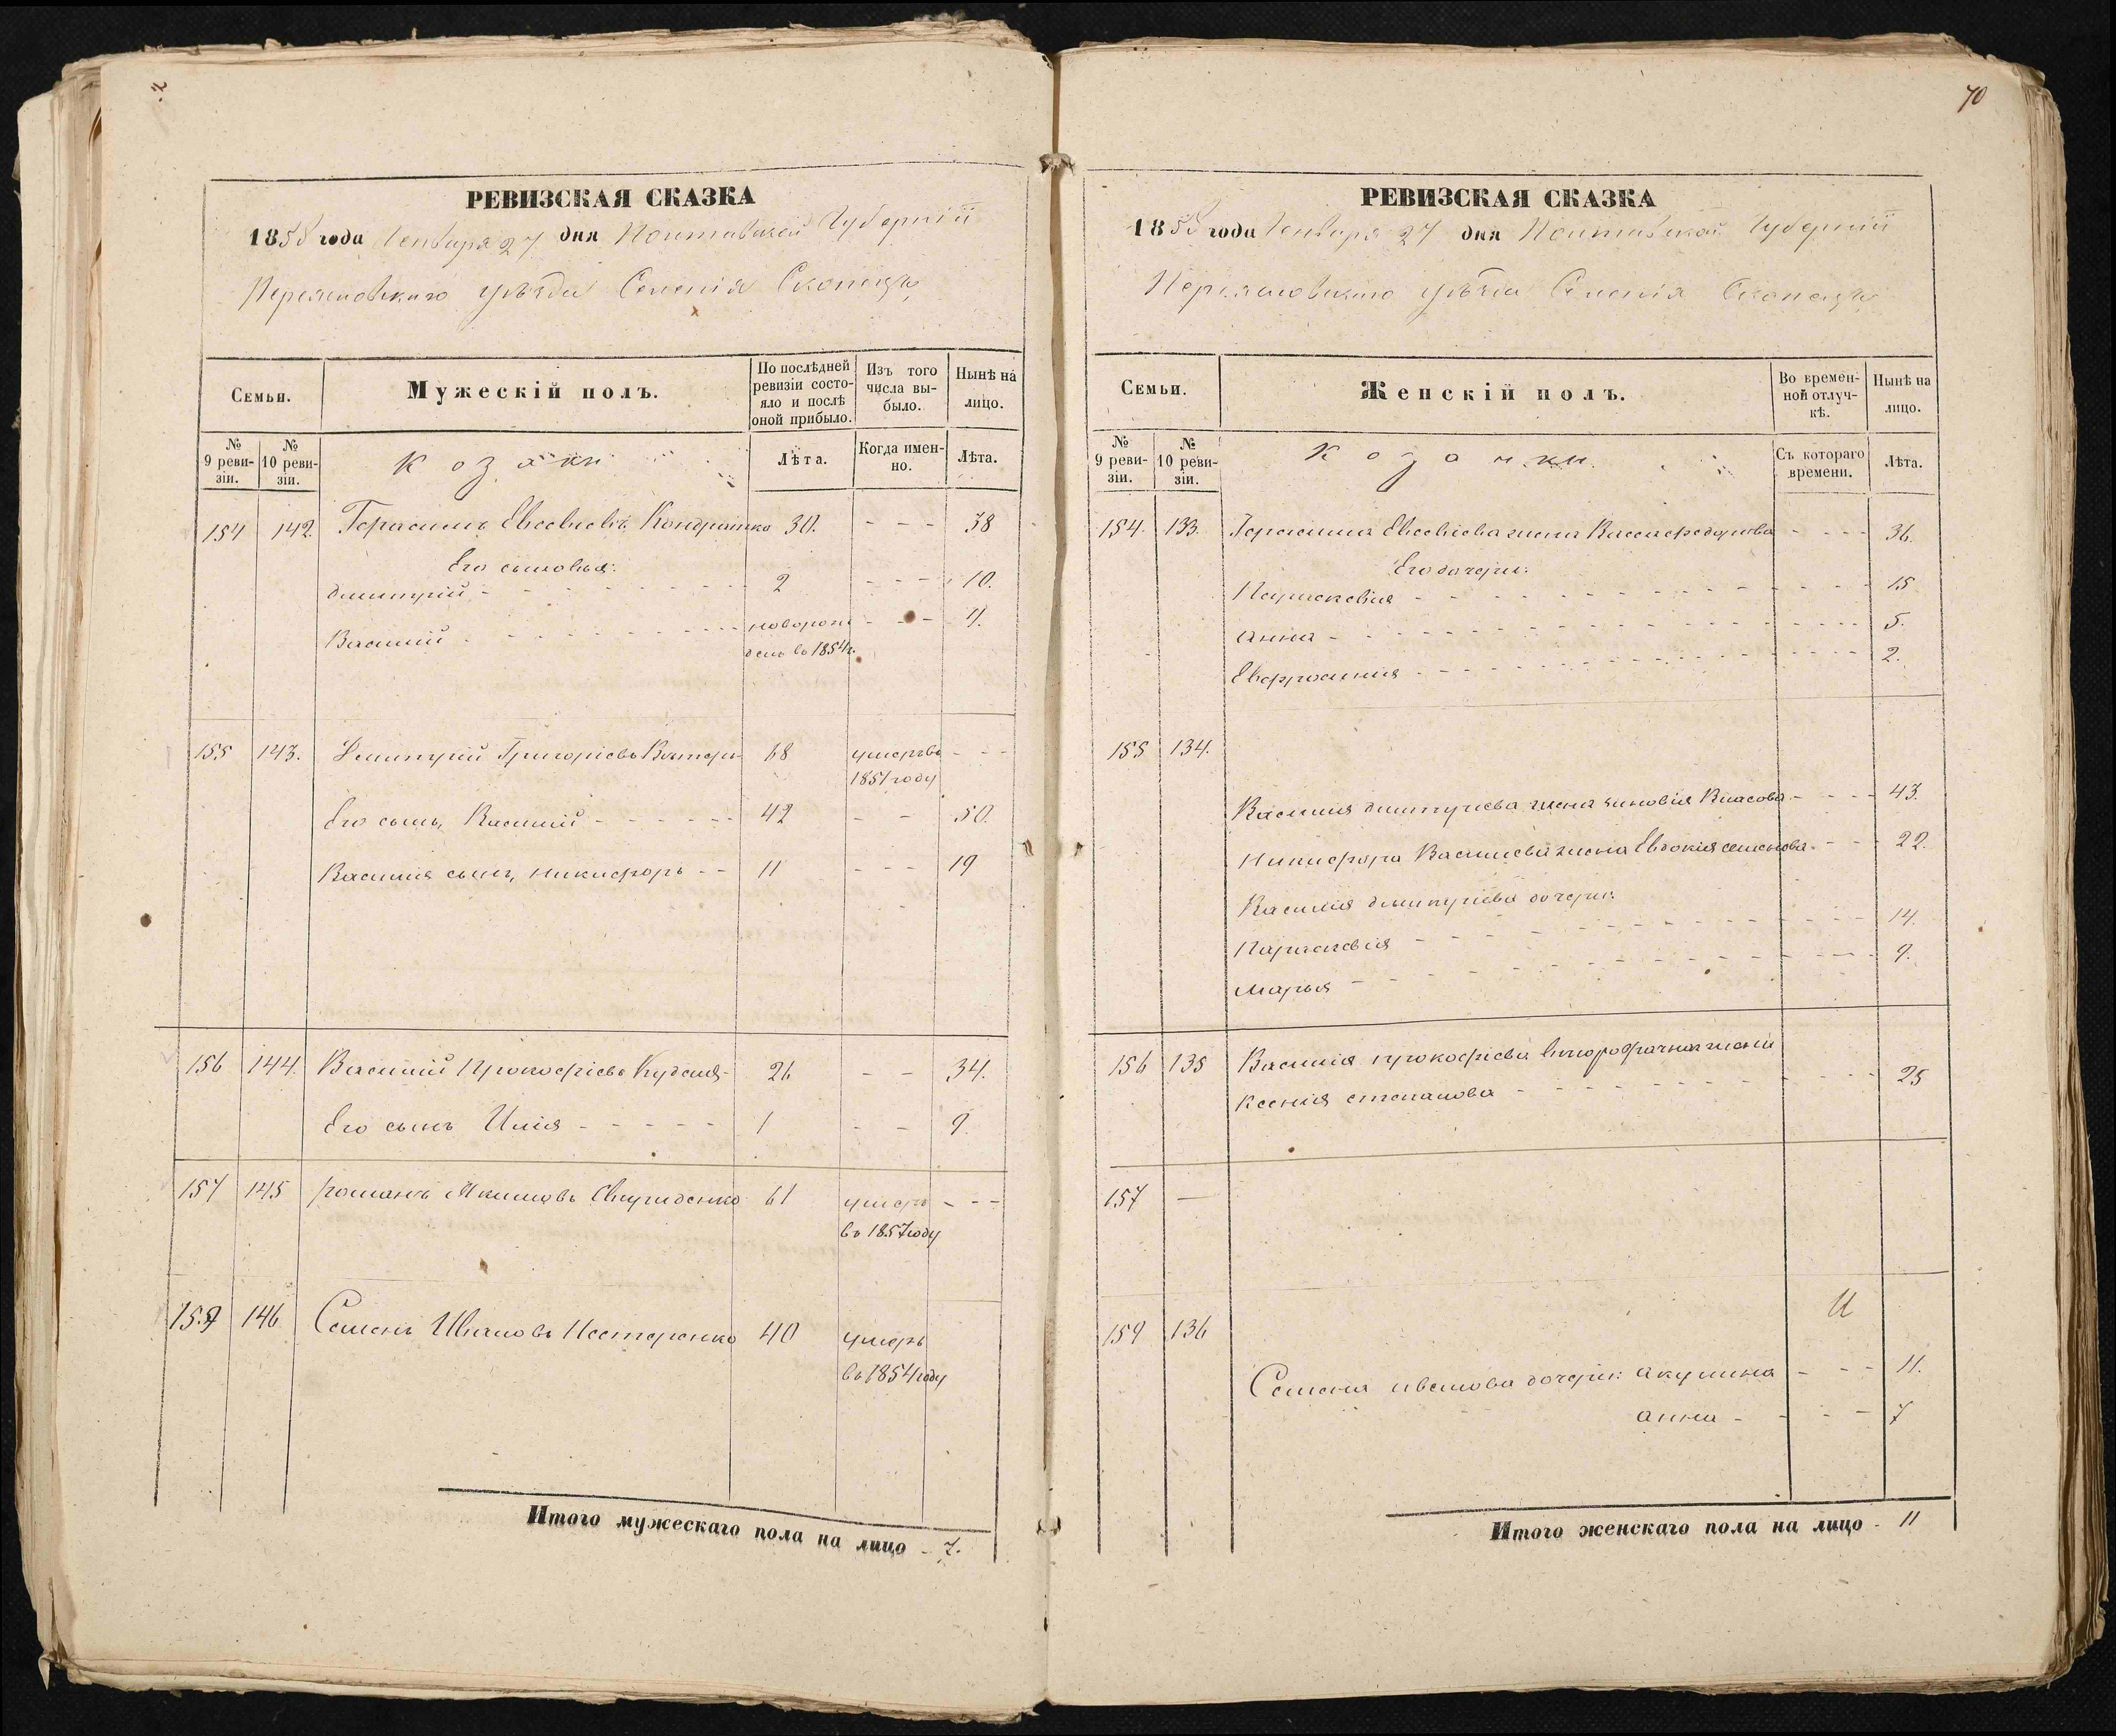 РЕВИЗСКАЯ СКАЗКА
1858 года Генваря 27 дня Полтавской Губерніи
Переяславскаго уѣзда Селенія Скопецъ
Семьи.
Мужескій полъ.
По послѣдней ревизіи состо-
яло и послѣ
оной прибыло.
Изъ того
числа вы-
было.
Нынѣ на
лицо.
№
9 реви-
зіи.
№
10 реви-
зіи.
Козаки
Лѣта.
Когда имен-
но.
Лѣта.
154 142. Герасимъ Евсевіевъ Кондратко 30. - - - 38
Его сыновья:
Дмитрій - 2 - - - 10.
Василій - новорож- - - - 4.
денъ въ 1854 г.
155 143. Дмитрій Григорієвъ 68 умеръ въ - - -
1851 году
Его сынъ, Василій - 42 - - 50.
Василія сынъ, Никифоръ - - 11 - - - 19
156 144. Василій Прокофіевъ 26 - - 34.
Его сынъ Илія - 1 - - 9
157 145 Романъ Якимовъ Свириденко 61 умеръ - - -
въ 1857 году
159 146 Семенъ Ивановъ Нестеренко 40 умеръ
въ 1854 году
Итого мужескаго пола на лицо - 7.
70
РЕВИЗСКАЯ СКАЗКА
1858 года Генваря 27 дня Полтавской Губерніи
Переяславскаго уѣзда Селенія Скопецъ
Семьи.
Женскій полъ.
Во времен-
ной отлуч-
кѣ.
Нынѣ на
лицо.
№
9 реви-
зіи.
№
10 реви-
зіи.
Козачки
Съ котораго
времени.
Лѣта.
154. 133. Герасима Евсевіева жена Васса Федорова - - - 36.
Его дочери:
Параскевія - 15
Анна - 5.
Евфросинія - 2.
155 134.
Василія Дмитріева жена Зиновія Власова - - - 43.
Никифора Васильева жена Евдокія Семенова - - - 22.
Василія Дмитріева дочери:
Параскевія - 14.
Марья - 9.
156 135 Василія Прокофіева второбрачная жена
Ксенія Степанова - 25
157 —
159 136
Семена Иванова дочери: Акулина - - - 11.
Анна - - - 7
Итого женскаго пола на лицо - 11